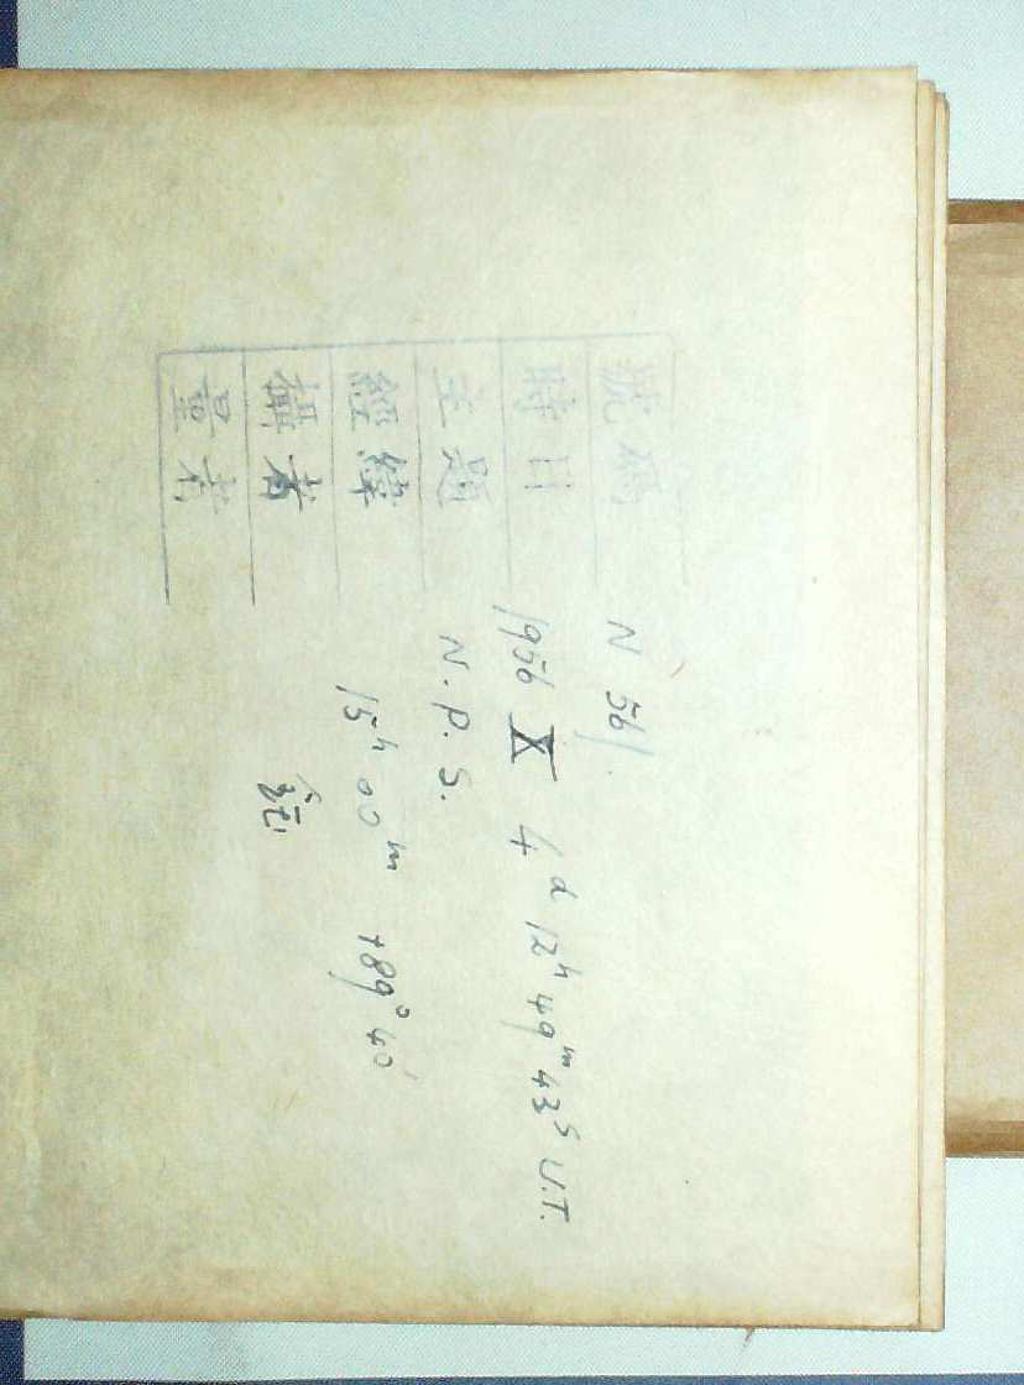 號碼 N 561
時日 1956 X 4ᵈ 12ʰ 49ᵐ 43ˢ U.T.
主題 N. P. S.
經緯 15ʰ 00ᵐ +89° 40′
攝者
量者